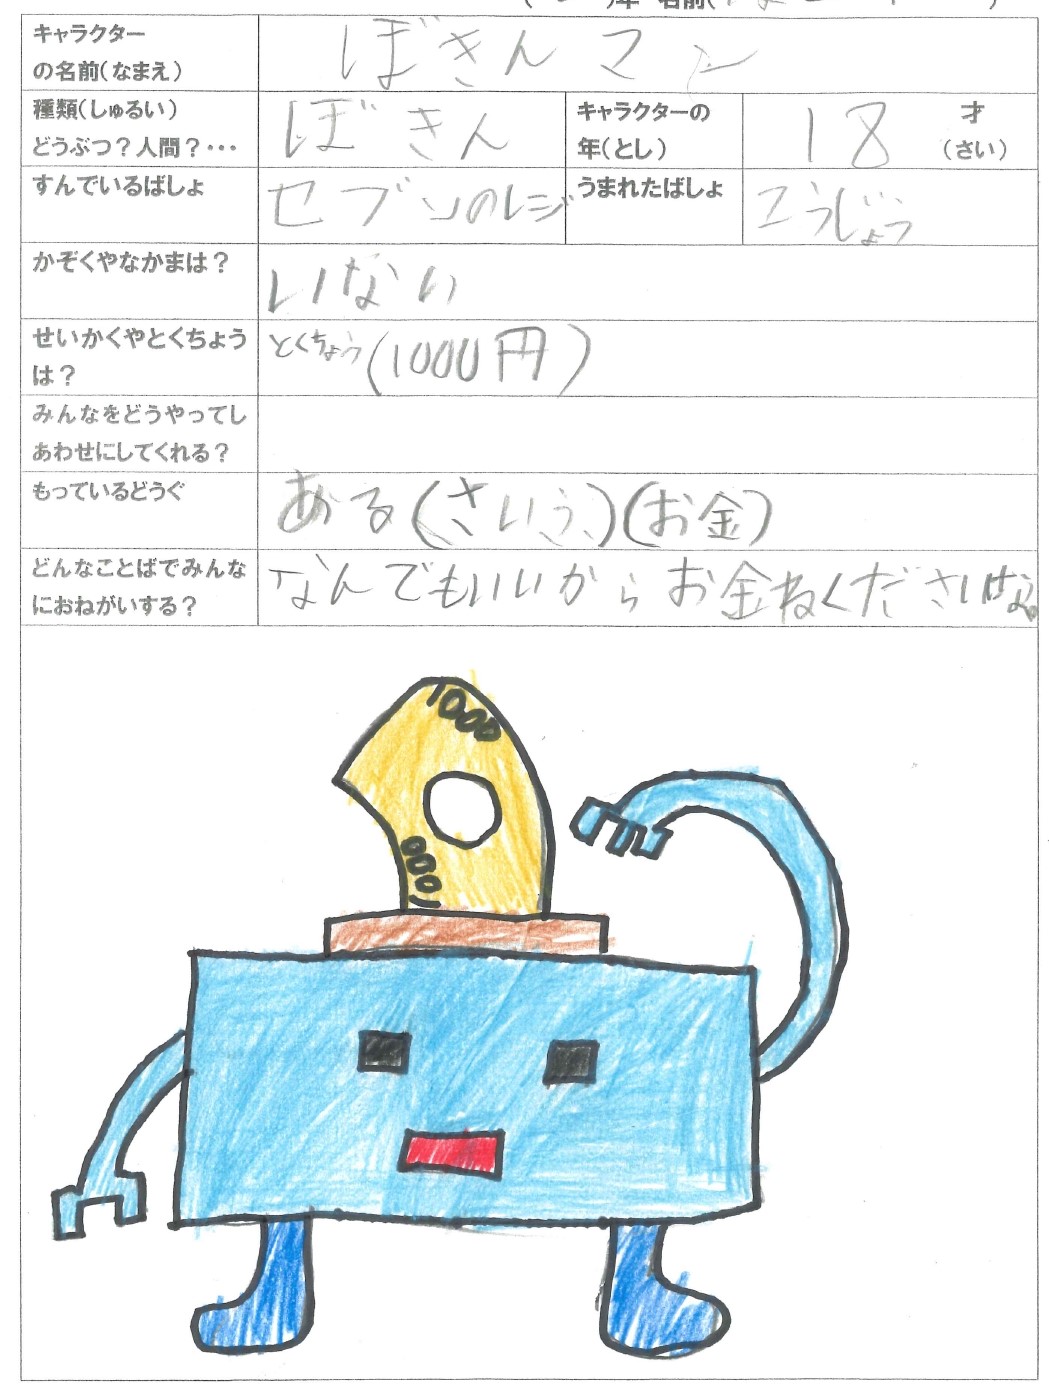 年 名前(
キャラクター
の名前(なまえ)
ぼきんマン
種類(しゅるい)
どうぶつ?人間?・・・
ぼきん
キャラクターの
年(とし)
18
才
(さい)
すんでいるばしょ
セブンのレジ
うまれたばしょ
こうじょう
かぞくやなかまは?
いない
せいかくやとくちょう
は?
とくちょう(1000円)
みんなをどうやってし
あわせにしてくれる?
もっているどうぐ
ある(さいふ)(お金)
どんなことばでみんな
におねがいする?
なんでもいいからお金ねください
1000
0001